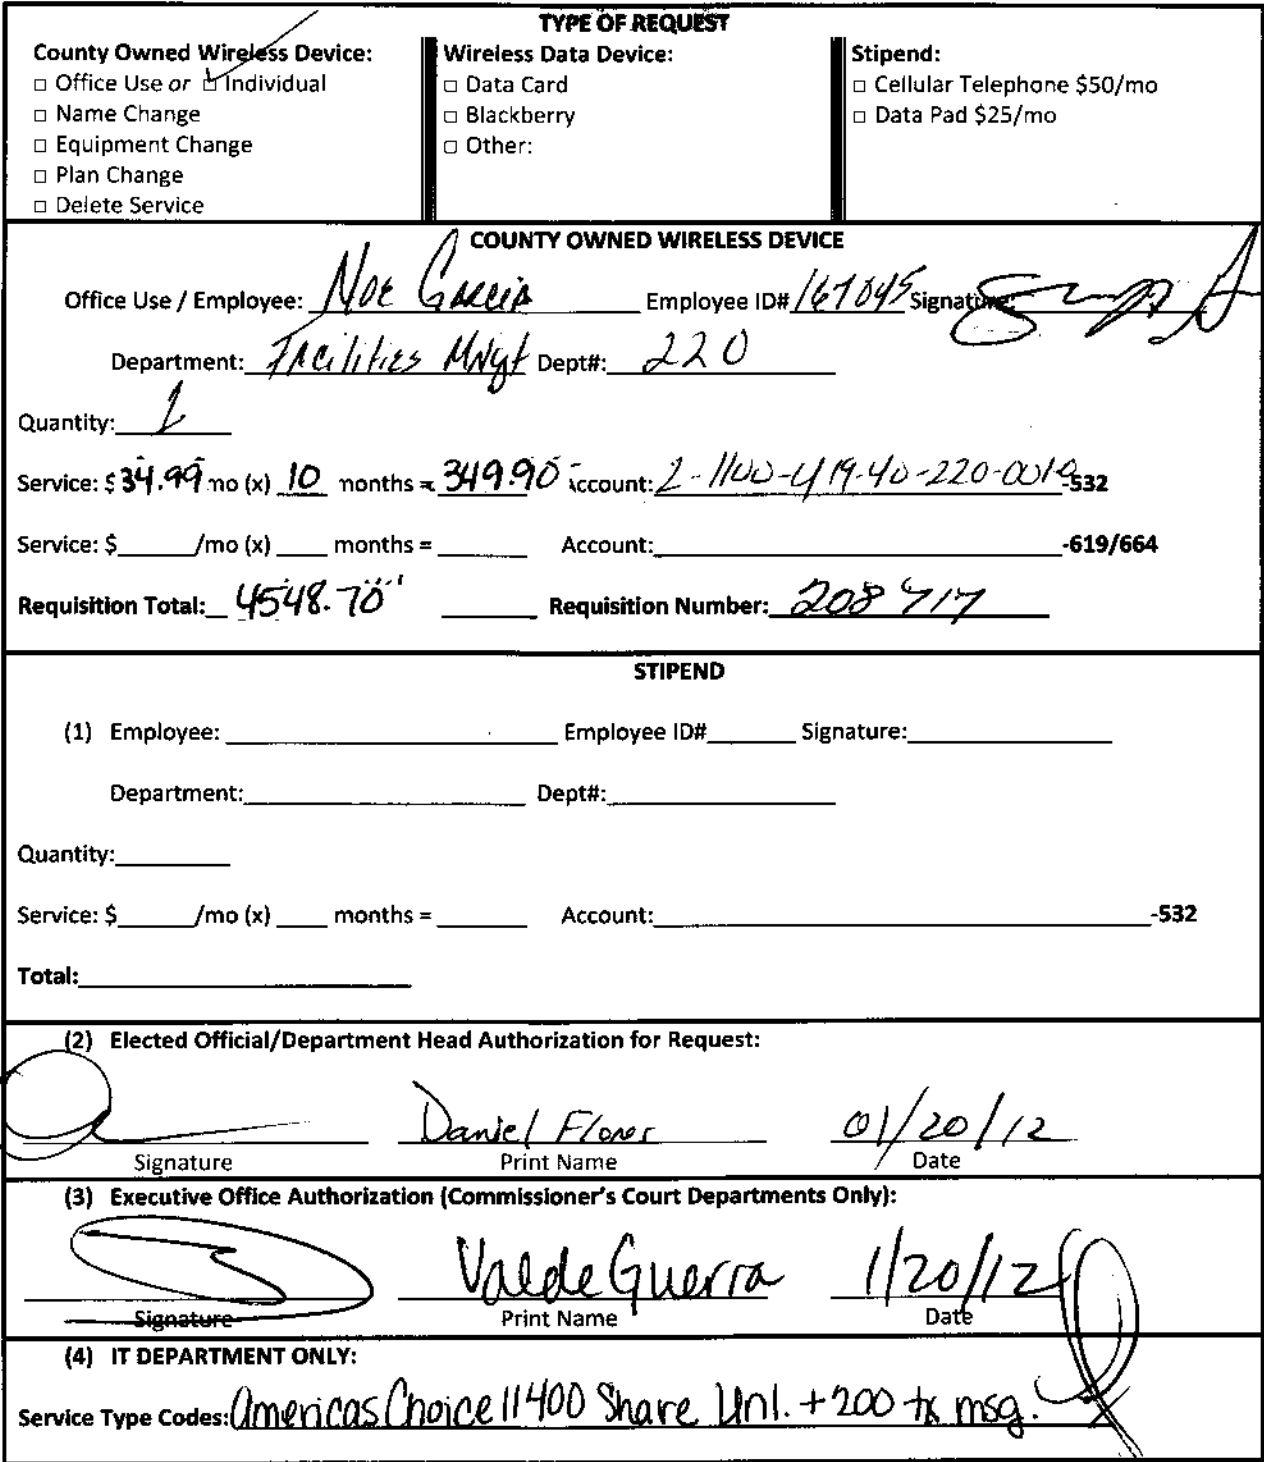 TYPE OF REQUEST
County Owned Wireless Device: Wireless Data Device: Stipend:
□ Office Use or ☑ Individual □ Data Card □ Cellular Telephone $50/mo
□ Name Change □ Blackberry □ Data Pad $25/mo
□ Equipment Change □ Other:
□ Plan Change
□ Delete Service
COUNTY OWNED WIRELESS DEVICE
Office Use / Employee: Noe Garcia Employee ID# 167045 Signature:
Department: Facilities Mngt Dept#: 220
Quantity: 1
Service: $ 34.99 mo (x) 10 months = 349.90 Account: 2-1100-419-40-220-001-532
Service: $ /mo (x) months = Account: -619/664
Requisition Total: 4548.70 Requisition Number: 208717
STIPEND
(1) Employee: Employee ID# Signature:
Department: Dept#:
Quantity:
Service: $ /mo (x) months = Account: -532
Total:
(2) Elected Official/Department Head Authorization for Request:
Daniel Flores 01/20/12
Signature Print Name Date
(3) Executive Office Authorization (Commissioner's Court Departments Only):
Valde Guerra 1/20/12
Signature Print Name Date
(4) IT DEPARTMENT ONLY:
Service Type Codes: Americas Choice II 1400 Share Unl. + 200 tx msg.